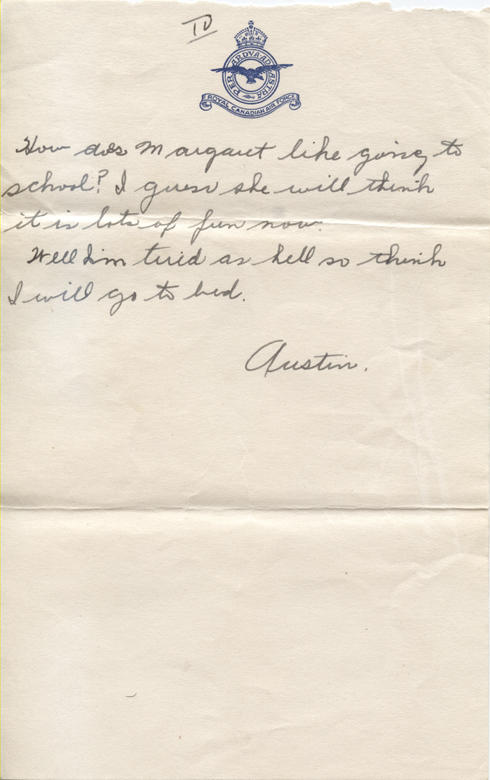 IV
PER ARDVA AD ASTRA
ROYAL CANADIAN AIR FORCE
How does Margaret like going to
school? I guess she will think
it is lots of fun now.
Well I'm tired as hell so think
I will go to bed.
Austin.